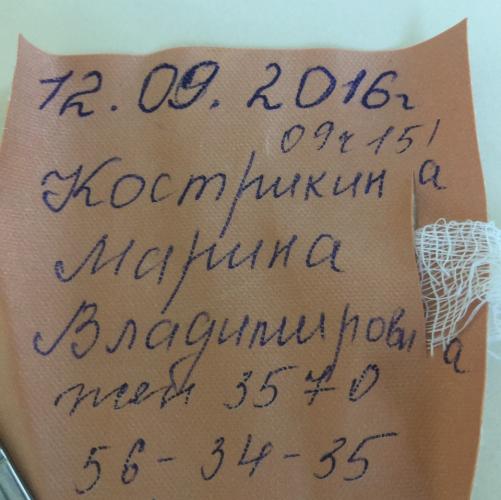 12.09.2016г
09ч 15'
Кострикина
Марина
Владимировна
жен 3570
56-34-35